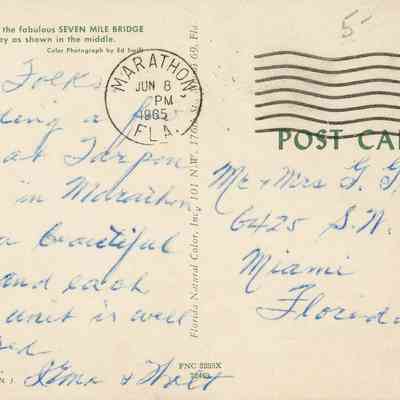 the fabulous SEVEN MILE BRIDGE
ey as shown in the middle.
Color Photograph by Ed Swift
Folks
ding a few
at Tarpon
in Marathon
a beautiful
and each
unit is well
MARATHON,
JUN 8
PM
1965
FLA.
Florida Natural Color, Inc., 101 N.W. 176th St., 69, Fla.
5-
POST CA
Mr + Mrs G. G.
6425 S.W.
Miami
Florida
+ Walt
N J.
FNC